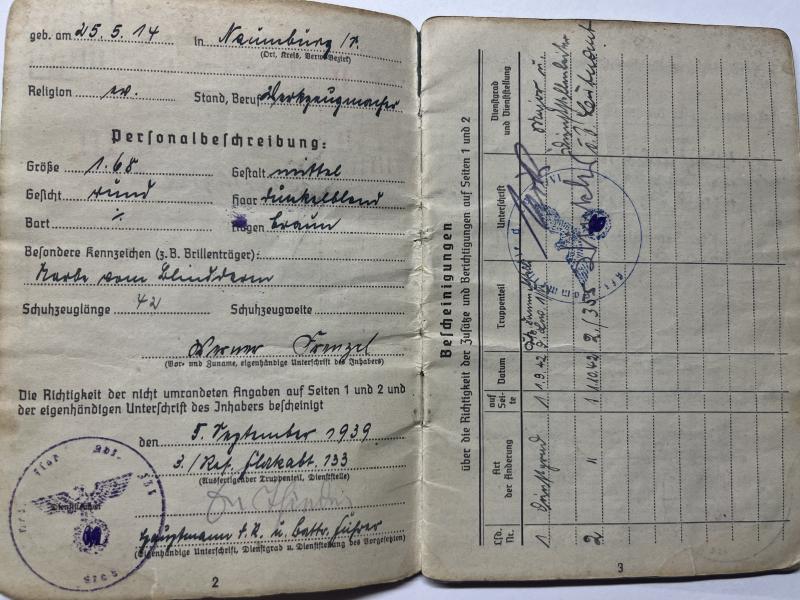 geb. am 25. 5. 14 in Naumburg/
(Ort, Kreis, Verw.-Bezirk)
Religion ev. Stand, Beruf Werkzeugmacher
Personalbeschreibung:
Größe 1.68 Gestalt mittel
Gesicht rund Haar dunkelblond
Bart ∕. Augen braun
Besondere Kennzeichen (z. B. Brillenträger):
Narbe vom Blinddarm
Schuhzeuglänge 42 Schuhzeugweite
Werner Frenzel
(Vor- und Zuname, eigenhändige Unterschrift des Inhabers)
Die Richtigkeit der nicht umrandeten Angaben auf Seiten 1 und 2 und
der eigenhändigen Unterschrift des Inhabers bescheinigt
den 5. September 1939
3./Res. Flakabt. 133
(Ausfertigender Truppenteil, Dienststelle)
Hauptmann d. R. u. Battr. Führer
(Eigenhändige Unterschrift, Dienstgrad u. Dienststellung des Vorgesetzten)
2
Bescheinigungen
über die Richtigkeit der Zusätze und Berichtigungen auf Seiten 1 und 2
Lfd. Nr. Art der Änderung auf Seite Datum Truppenteil Unterschrift Dienstgrad und Dienststellung
1 Dienstgrad 1 1.9.42 Major u.
2 " 1 1.10.42 2/353
3